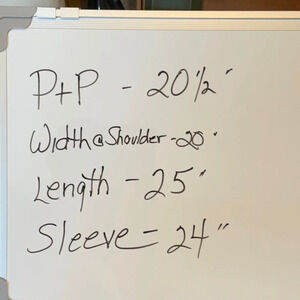 P+P - 20 1/2"
Width @ Shoulder - 20"
Length - 25"
Sleeve - 24"